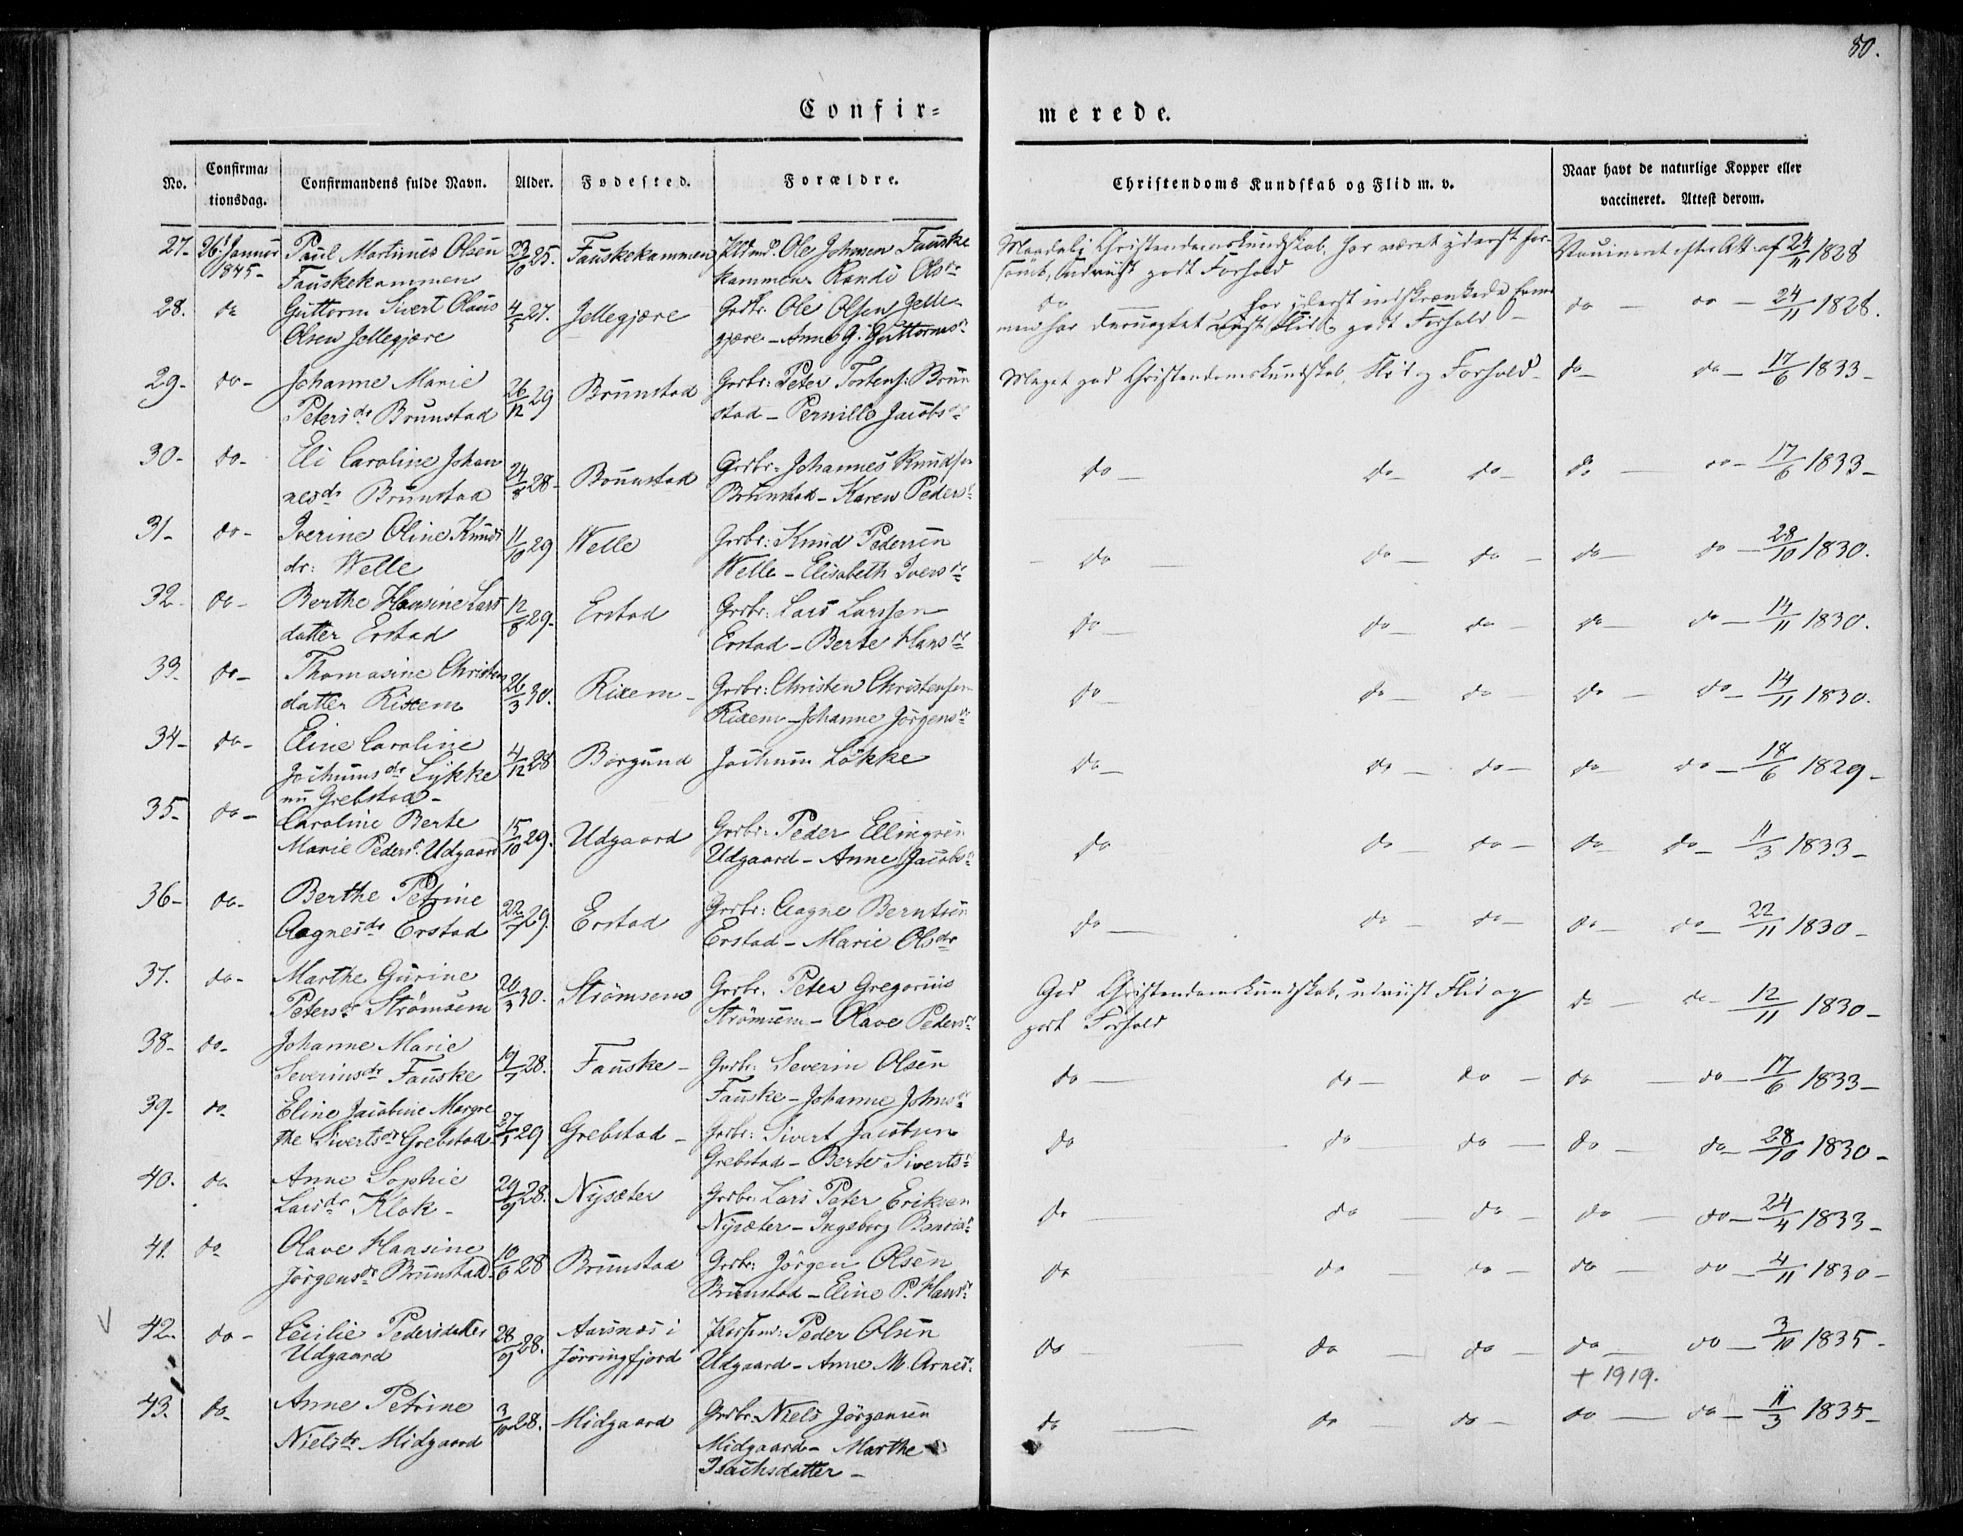 80.
Confir-
merede.
No.
Confirma-
tionsdag.
Confirmandens fulde Navn.
Alder.
Fødested.
Forældre.
Christendoms Kundskab og Flid m. v.
Naar havt de naturlige Kopper eller
vaccineret. Attest derom.
27- 26 Januar Paul Martinus Olsen 23/10 25. Fauskekammen Ole Johnsen Fauske
1845- Fauskekammen kammen Randi Olsdr
Maadelig Christendomskundskab, har været yderst for-
sømt, udviist godt Forhold
Vaccineret efter Att. af 24/11 1828
28. do Guttorm Sivert Olaus 4/5 27. Jellegjære Grbr. Ole Olsen Jelle-
Olsen Jellegjære gjære - Anne G. Guttormsdr
do - har yderst indskrænkede Evne
men har desuagtet viist Flid & godt Forhold -
do - do - 24/11 1828.
29- do- Johanne Marie 26/12 29 Brunstad Grbr: Peter Tostens: Brun
Petersdr Brunstad stad - Pernille Jacobsdr
Meget god Christendomskundskab, Flid og Forhold - do- do- 17/6 1833-
30- do- Eli Caroline Johan 24/8 28- Brunstad Grbr: Johannes Knudsen
nesdr Brunstad Brunstad - Karen Pedersdr
do- do- do- do- do- 17/6 1833-
31- do- Iverine Oline Knuds 11/10 29 Welle Grbr: Knud Pedersen
dr: Welle Welle - Elisabeth Iversdr
do - do - do - do - do - 28/10 1830.
32. do- Berthe Hansine Lars 12/8 29- Erstad Grbr: Lars Larssen
datter Erstad Erstad - Berte Hansdr
do - do - do - do - do - 14/11 1830.
33. do- Thomasine Christen 26/3 30. Rixem- Grbr: Christen Christensen
datter Rixem Rixem - Johanne Jørgensdr
do - do - do - do - do - 14/11 1830.
34- do- Eline Caroline 4/12 28 Borgund Jochum Løkke
Jochumsdr Lykke
nu Grebstad-
do- do - do- do- do- 18/6 1829-
35- do- Caroline Berte 15/10 29. Udgaard Grbr: Peder Ellingsen
Marie Pedersdr Udgaard Udgaard - Anne Jacobsdr
do do- do- do- do- 11/3 1833-
36- do- Berthe Petrine 22/7 29. Erstad Grbr: Aagne Berntsen
Aagnesdr Erstad Erstad - Marie Olsdr
do- do- do- do- do- 22/11 1830-
37. do- Marthe Gurine 26/3 30. Strømsem Grbr. Peter Gregorius
Petersdr Strømsem Strømsem - Olave Pedersdr
God Christendomskundskab, udviist Flid og
godt Forhold
do - do- 12/11 1830-
38- do- Johanne Marie 19/7 28. Fauske- Grbr: Severin Olsen
Severinsdr Fauske Fauske - Johanne Johnsdr
do - do - do - do - do - 17/6 1833-
39- do Eline Jacobine Margre 29 Grebstad- Grbr: Sivert Jacobsen
the Sivertsdr Grebstad Grebstad - Berte Sivertsdr
do do - do - do - do- 28/10 1830-
40. do Anne Sophie 29/9 28. Nysæter Grbr: Lars Peter Eriksen
Larsdr Klok- Nysæter - Ingeborg
do - do - do - do - do- 24/4 1833-
41. do Olave Hansine 10/6 28 Brunstad Grbr: Jørgen Olsen
Jørgensdr Brunstad. Brunstad - Eline P. Hansdr
do - do - do - do - do- 4/11 1830-
42. do- Cecilie Pedersdatter 28/9 28. Aarsnæs i Peder Olsen
Udgaard Jørringfjord Udgaard - Anne M. Arnesdr
do - do - do - do - do- 3/10 1835-
+ 1919.
43. do- Anne Petrine 3/10 28. Midgaard Grbr: Niels Jørgensen
Nielsdr Midgaard Midgaard - Marthe
Isachsdatter-
do - do - do - do - do- 11/3 1835-